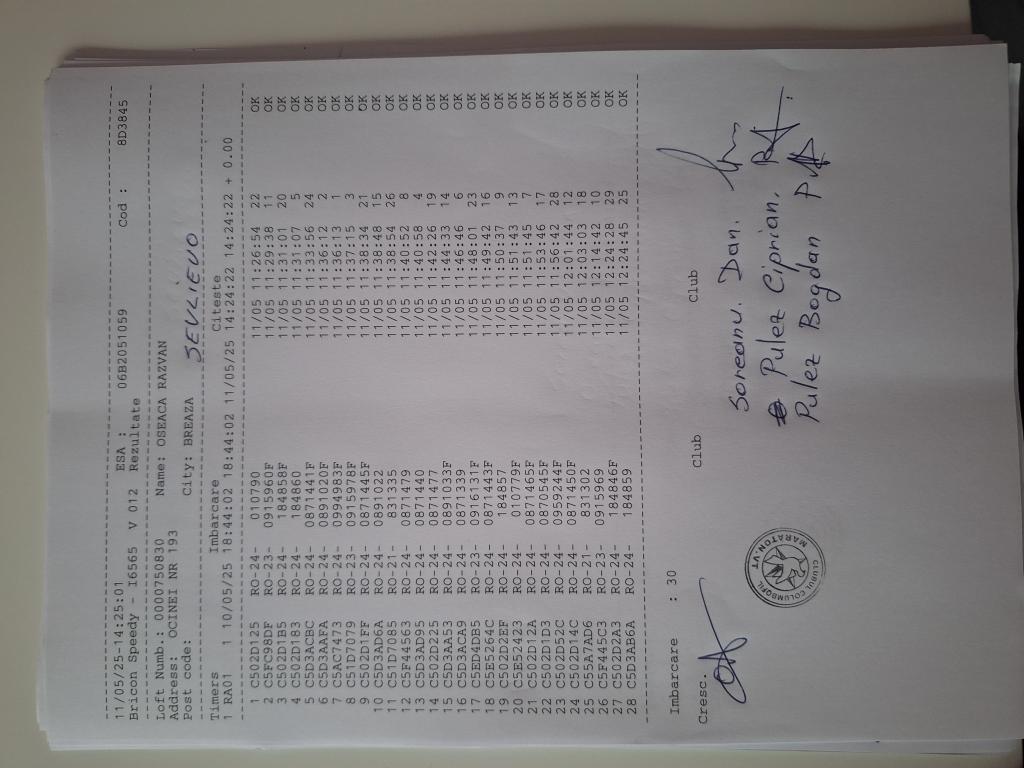 11/05/25-14:25:01 ESA : 06B2051059 Cod : 8D3845
Bricon Speedy - 16565 V 012 Rezultate
Loft Numb.: 0000750830 Name: OSEACA RAZVAN
Address: OCINEI NR 193
Post code: City: BREAZA SEVLIEVO
Timers Imbarcare Citeste
1 RA01 1 10/05/25 18:44:02 18:44:02 11/05/25 14:24:22 14:24:22 + 0.00
1 C502D125 RO-24- 010790 11/05 11:26:54 22 OK
2 C5FC98DF RO-23- 0915960F 11/05 11:29:38 11 OK
3 C502D1B5 RO-24- 184858F 11/05 11:31:01 20 OK
4 C502D183 RO-24- 184860 11/05 11:31:07 5 OK
5 C5D3ACBC RO-24- 0871441F 11/05 11:33:56 24 OK
6 C5D3AAFA RO-24- 0891020F 11/05 11:36:12 2 OK
7 C5AC7473 RO-23- 0994983F 11/05 11:36:13 1 OK
8 C51D7079 RO-23- 0915978F 11/05 11:37:15 3 OK
9 C502D1FF RO-24- 0871445F 11/05 11:38:34 21 OK
10 C5D3AD6A RO-24- 0891022 11/05 11:38:48 15 OK
11 C51D7085 RO-21- 831335 11/05 11:38:54 26 OK
12 C5F44563 RO-24- 0871479 11/05 11:40:52 8 OK
13 C5D3AD95 RO-24- 0871440 11/05 11:40:58 4 OK
14 C502D225 RO-24- 0871477 11/05 11:42:26 19 OK
15 C5D3AA53 RO-24- 0891033F 11/05 11:44:33 14 OK
16 C5D3ACA9 RO-24- 0871339 11/05 11:46:46 6 OK
17 C5ED4DB5 RO-23- 0916131F 11/05 11:48:01 23 OK
18 C5E5264C RO-24- 0871443F 11/05 11:49:42 16 OK
19 C502D2EF RO-24- 184857 11/05 11:50:37 9 OK
20 C5E52423 RO-24- 010779F 11/05 11:51:43 13 OK
21 C502D12A RO-24- 0871465F 11/05 11:51:45 7 OK
22 C502D1D3 RO-24- 0870545F 11/05 11:53:46 17 OK
23 C502D52C RO-24- 0959244F 11/05 11:56:42 28 OK
24 C502D14C RO-24- 0871450F 11/05 12:01:44 12 OK
25 C55A7AD6 RO-21- 831302 11/05 12:03:03 18 OK
26 C5F445C3 RO-23- 0915969 11/05 12:14:42 10 OK
27 C502D2A3 RO-24- 184846F 11/05 12:24:28 29 OK
28 C5D3AB6A RO-24- 184859 11/05 12:24:45 25 OK
Imbarcare : 30
Cresc. Club Club
Soreanu Dan.
Pulez Ciprian.
Pulez Bogdan
CLUBUL COLUMBOFIL
MARATON.VT